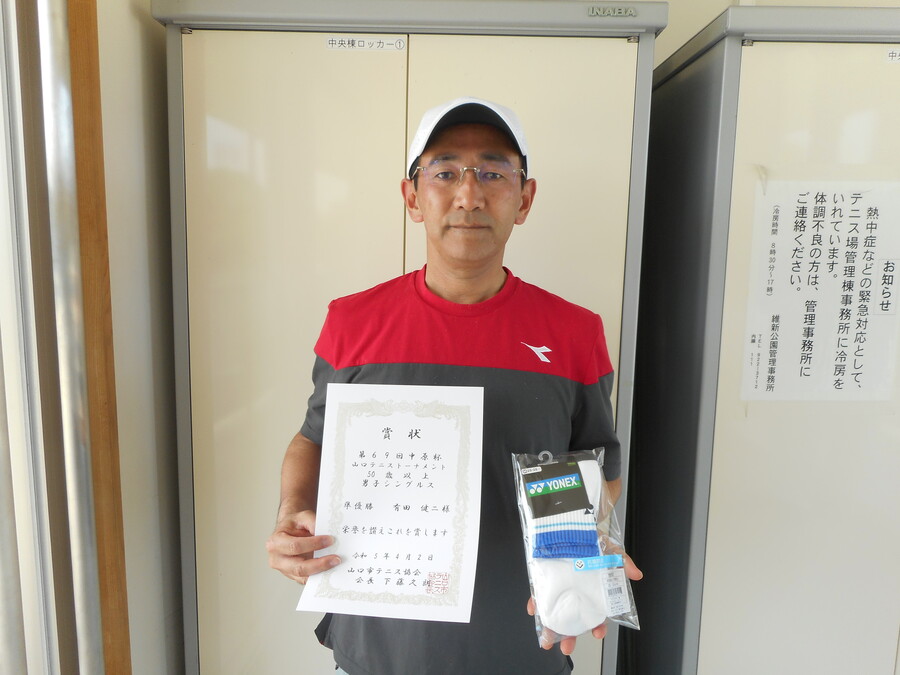 INABA
中央棟ロッカー①
賞状
第69回中原杯
山口テニストーナメント
50歳以上
男子シングルス
準優勝 有田 健二様
栄誉を讃えこれを賞します
令和5年4月2日
山口市テニス協会
会長 下藤文朗
YONEX
お知らせ
熱中症などの緊急対応として、
テニス場管理棟事務所に冷房を
いれています。
体調不良の方は、管理事務所に
ご連絡ください。
(冷房時間 8時30分~17時)
維新公園管理事務所